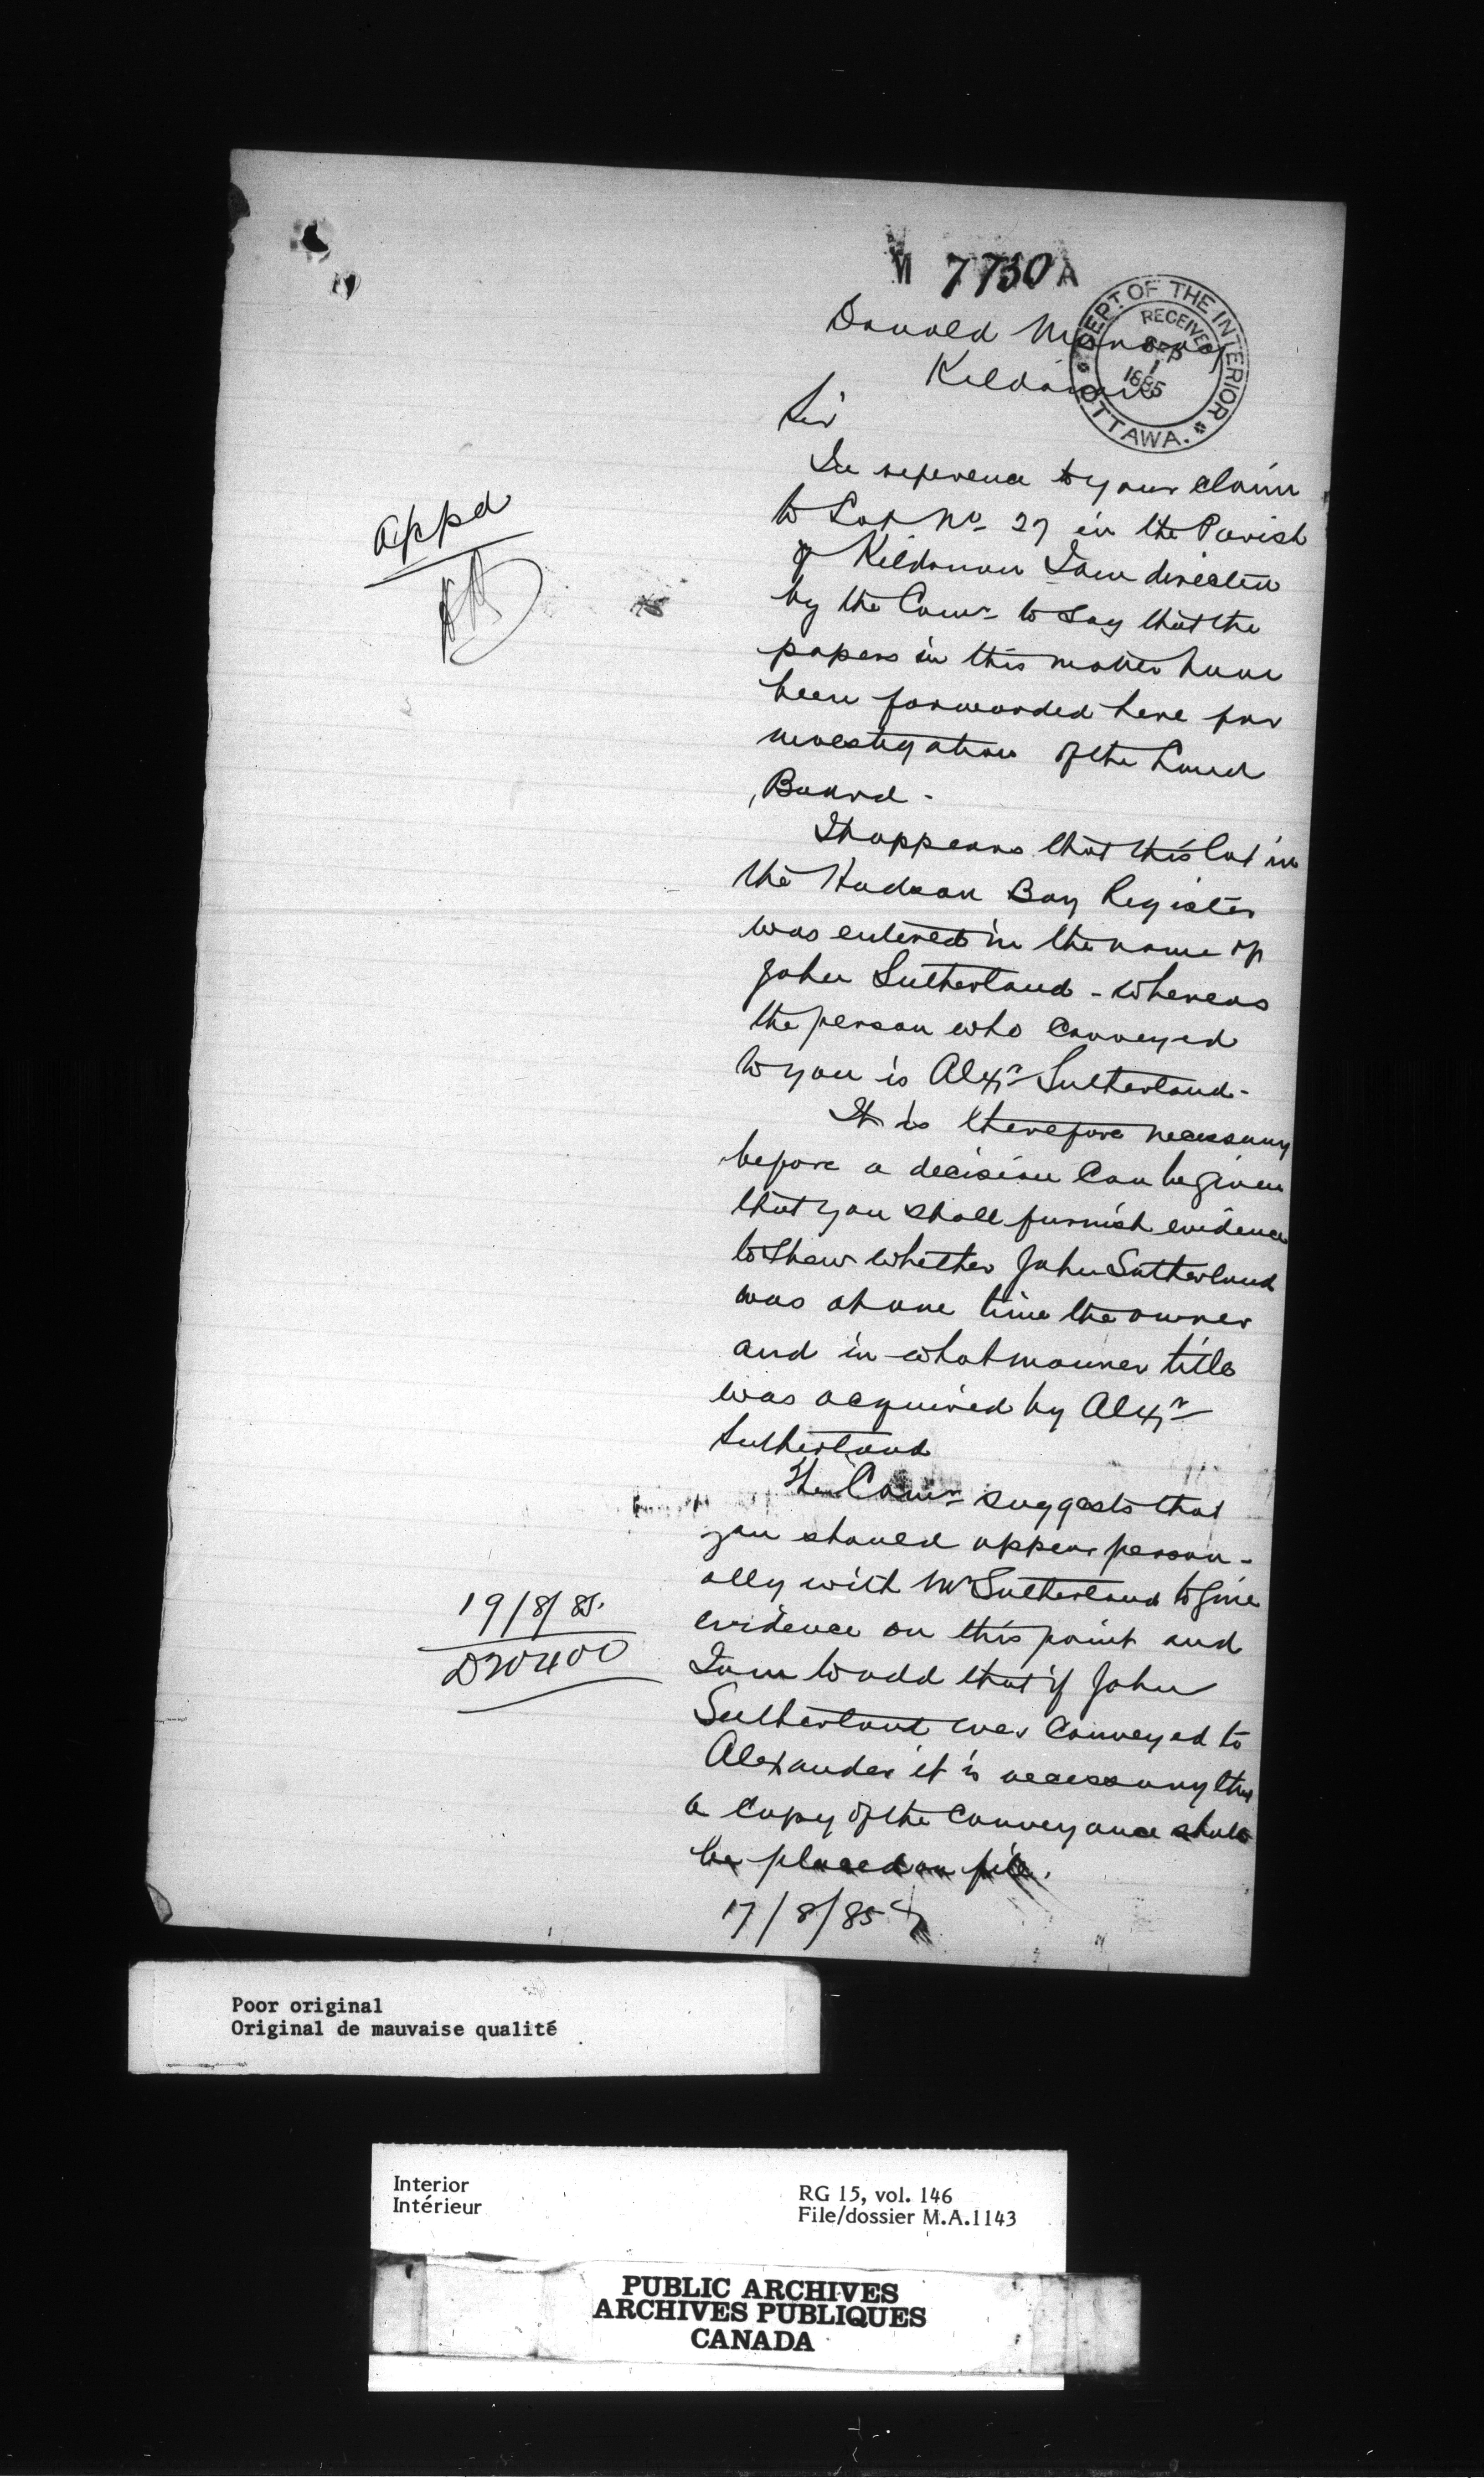 7730 A
DEPT. OF THE INTERIOR
RECEIVED
SEP
1
1885
OTTAWA.
Donald
Kildonan
Sir
In reference to your claim
to Lot No 27 in the Parish
of Kildonan I am directed
by the Comr to say that the
papers in this matter have
been forwarded here for
investigation of the Land
Board -
It appears that this lot in
the Hudson Bay Register
was entered in the name of
John Sutherland - whereas
the person who conveyed
to you is Alexr Sutherland -
It is therefore necessary
before a decision can be given
that you shall furnish evidence
to shew whether John Sutherland
was at one time the owner
and in what manner title
was acquired by Alexr
Sutherland
The Comr suggests that
you should appear person-
ally with Mr Sutherland to give
evidence on this point and
I am to add that if John
Sutherland ever conveyed to
Alexander it is necessary that
a copy of the conveyance should
be placed on file.
17/8/85
appd
19/8/85.
D20400
Poor original
Original de mauvaise qualité
Interior
Intérieur
RG 15, vol. 146
File/dossier M.A.1143
PUBLIC ARCHIVES
ARCHIVES PUBLIQUES
CANADA